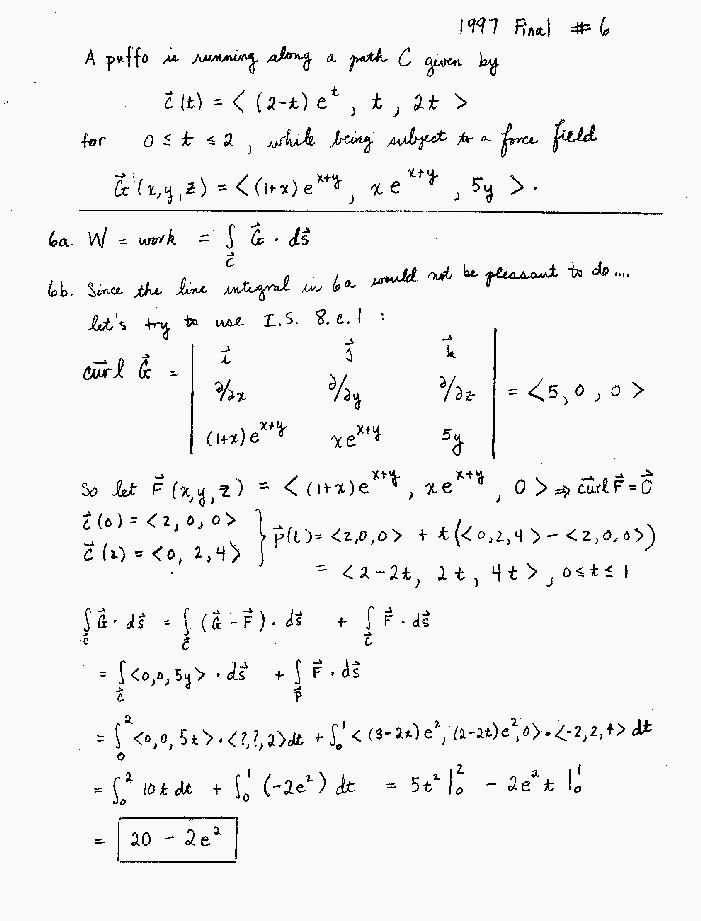 1997 Final #6
A puffo is running along a path C given by
c⃗(t) = < (2-t)e^t , t , 2t >
for 0 ≤ t ≤ 2 , while being subject to a force field
G⃗(x,y,z) = <(1+x)e^{x+y} , xe^{x+y} , 5y > .
6a. W = work = ∫_c⃗ G⃗ · ds⃗
6b. Since the line integral in 6a would not be pleasant to do ....
let's try to use I.S. 8.c.1 :
curl G⃗ = | i⃗ j⃗ k⃗ |
| ∂/∂x ∂/∂y ∂/∂z | = <5,0,0>
| (1+x)e^{x+y} xe^{x+y} 5y |
So let F⃗(x,y,z) = < (1+x)e^{x+y} , xe^{x+y} , 0 > ⇒ curl F⃗ = 0⃗
c⃗(0) = <2,0,0> } p⃗(t) = <2,0,0> + t(<0,2,4> - <2,0,0>)
c⃗(2) = <0,2,4> = <2-2t, 2t, 4t> , 0≤t≤1
∫_c⃗ G⃗ · ds⃗ = ∫_c⃗ (G⃗ - F⃗) · ds⃗ + ∫_c⃗ F⃗ · ds⃗
= ∫_c⃗ <0,0,5y> · ds⃗ + ∫_p⃗ F⃗ · ds⃗
= ∫_0^2 <0,0,5t> · <?,?,2>dt + ∫_0^1 <(3-2t)e^2, (2-2t)e^2, 0> · <-2,2,4> dt
= ∫_0^2 10t dt + ∫_0^1 (-2e^2) dt = 5t^2 |_0^2 - 2e^2 t |_0^1
= 20 - 2e^2